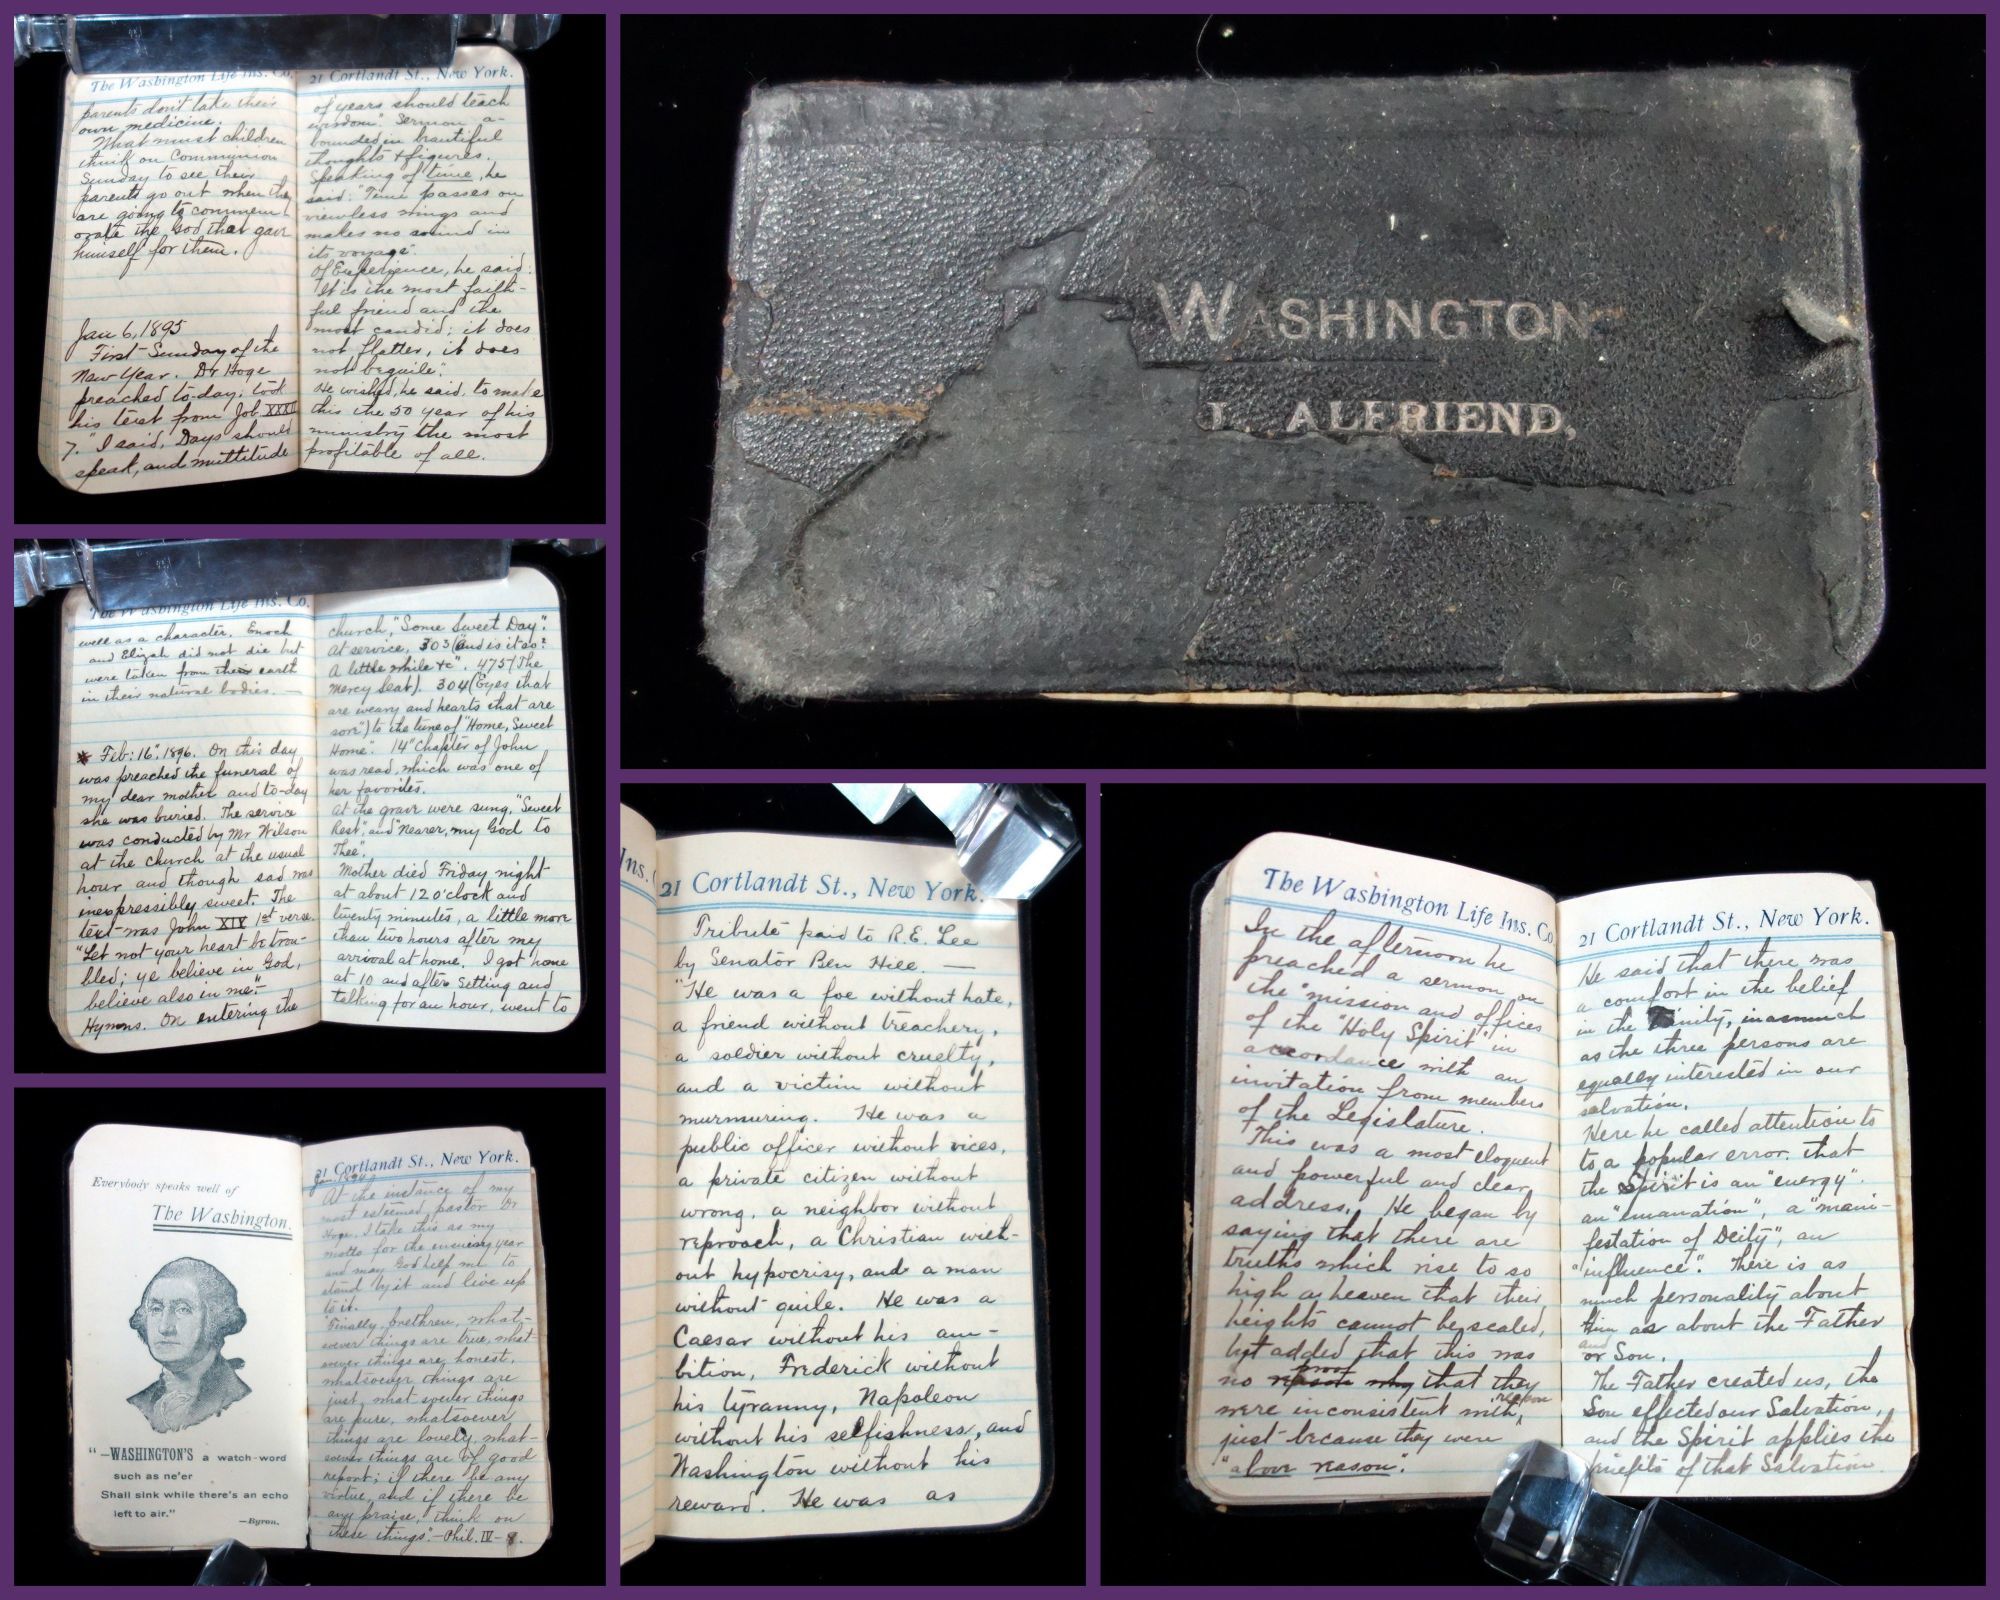 The Washington Life Ins. Co.
parents don't take their
own medicine.
What must children
think on Communion
Sunday to see their
parents go out when they
are going to commem-
orate the God that gave
himself for them.
Jan 6, 1895
First Sunday of the
New Year. Dr Hoge
preached to-day; took
his text from Job XXXII
7. "I said, Days should
speak, and multitude
21 Cortlandt St., New York.
of years should teach
wisdom". Sermon a-
bounded in beautiful
thoughts & figures.
Speaking of time, he
said: "Time passes on
viewless wings and
makes no sound in
its voyage".
Of Experience, he said:
"It is the most faith-
ful friend and the
most candid; it does
not flatter, it does
not beguile".
He wished, he said, to make
this the 50 year of his
ministry the most
profitable of all.
WASHINGTON
L. ALFRIEND,
The Washington Life Ins. Co.
well as a character. Enoch
and Elijah did not die but
were taken from their earth
in their natural bodies. —
* Feb: 16", 1896. On this day
was preached the funeral of
my dear mother and to-day
she was buried. The service
was conducted by Mr Wilson
at the church at the usual
hour and though sad was
inexpressibly sweet. The
text was John XIV 1st verse.
"Let not your heart be trou-
bled; ye believe in God,
believe also in me".
Hymns. On entering the
church, "Some Sweet Day".
At service, 303 (And is it so?
A little while &c". 475 (The
Mercy Seat). 304 (Eyes that
are weary and hearts that are
sore") to the tune of "Home, Sweet
Home". 14" Chapter of John
was read, which was one of
her favorites.
At the grave were sung, "Sweet
Rest", and "Nearer, my God to
Thee".
Mother died Friday night
at about 12 o'clock and
twenty minutes, a little more
than two hours after my
arrival at home. I got home
at 10 and after sitting and
talking for an hour, went to
Everybody speaks well of
The Washington.
"—WASHINGTON'S a watch-word
such as ne'er
Shall sink while there's an echo
left to air."
—Byron.
21 Cortlandt St., New York.
At the instance of my
most esteemed pastor Dr
Hoge, I take this as my
motto for the ensuing year
and may God help me to
stand by it and live up
to it.
"Finally, brethren, what-
soever things are true, what-
soever things are honest,
whatsoever things are
just, what soever things
are pure, whatsoever
things are lovely, what-
soever things are of good
report; if there be any
virtue, and if there be
any praise, think on
these things".—Phil. IV-8.
Ins.
21 Cortlandt St., New York.
Tribute paid to R.E. Lee
by Senator Ben Hill. —
"He was a foe without hate,
a friend without treachery,
a soldier without cruelty,
and a victim without
murmuring. He was a
public officer without vices,
a private citizen without
wrong, a neighbor without
reproach, a Christian with-
out hypocrisy, and a man
without guile. He was a
Caesar without his am-
bition, Frederick without
his tyranny, Napoleon
without his selfishness, and
Washington without his
reward. He was as
The Washington Life Ins. Co
In the afternoon he
preached a sermon on
the "mission and offices
of the "Holy Spirit" in
accordance with an
invitation from members
of the Legislature.
This was a most eloquent
and powerful and clear
address. He began by
saying that there are
truths which rise to so
high as heaven that their
heights cannot be scaled,
but added that this was
proof
no reason why that they
reason
were inconsistent with,
just because they were
"above reason".
21 Cortlandt St., New York.
He said that there was
a comfort in the belief
in the Trinity, inasmuch
as the three persons are
equally interested in our
salvation.
Here he called attention to
to a popular error, that
the Spirit is an "energy",
an "emanation", a "mani-
festation of Deity", an
"influence". There is as
much personality about
him as about the Father
and
or Son.
The Father created us, the
Son effected our Salvation,
and the Spirit applies the
benefits of that Salvation.